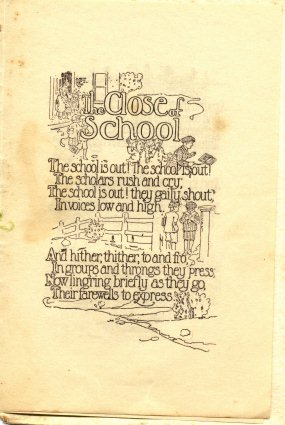 The Close of
School
The school is out! The school is out!
The scholars rush and cry;
The school is out! they gaily shout,
In voices low and high.
And hither, thither, to and fro
In groups and throngs they press,
Now ling'ring briefly as they go
Their farewells to express